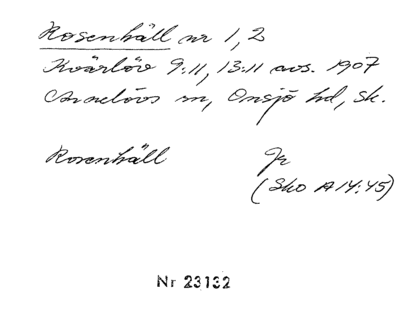 Rosenhäll nr 1, 2
Kvärlöv 9:11, 13:11 avs. 1907
Annelövs sn, Onsjö hd, Sk.
Rosenhäll Jr
(Sko A14:45)
Nr 23132